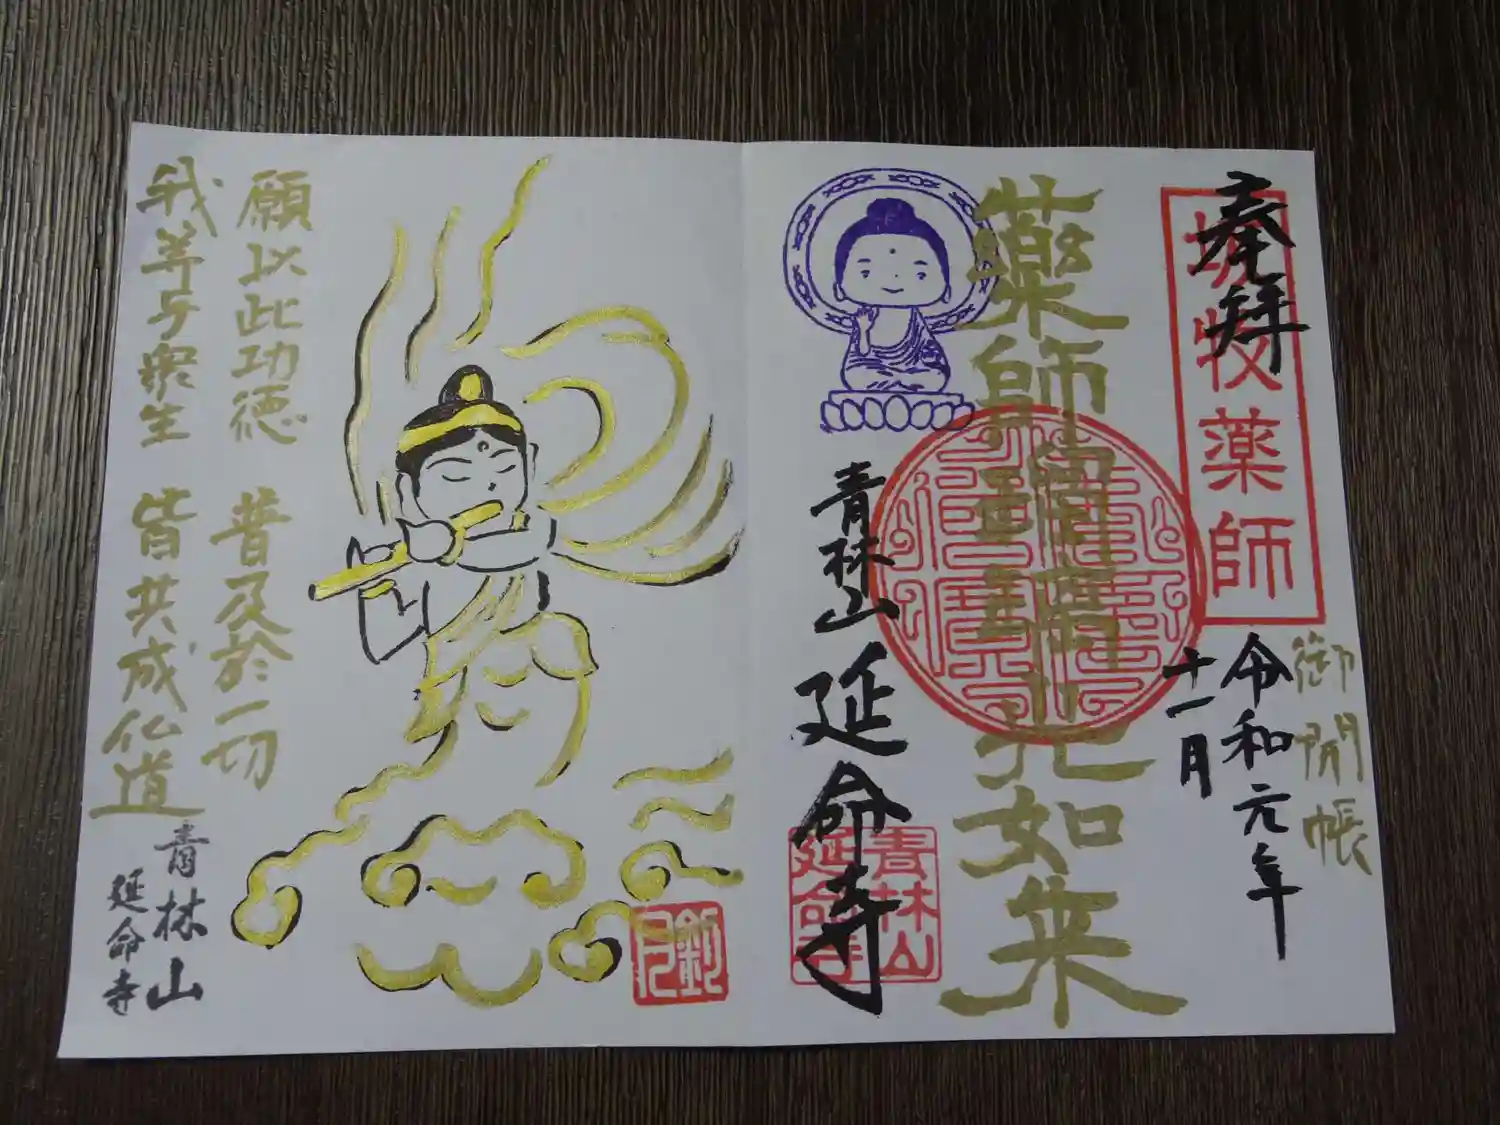 奉拝
牧薬師
御開帳
令和元年
十一月
薬師瑠璃光如来
青林山 延命寺
青林山
延命寺
願以此功徳 普及於一切
我等与衆生 皆共成仏道
青林山
延命寺